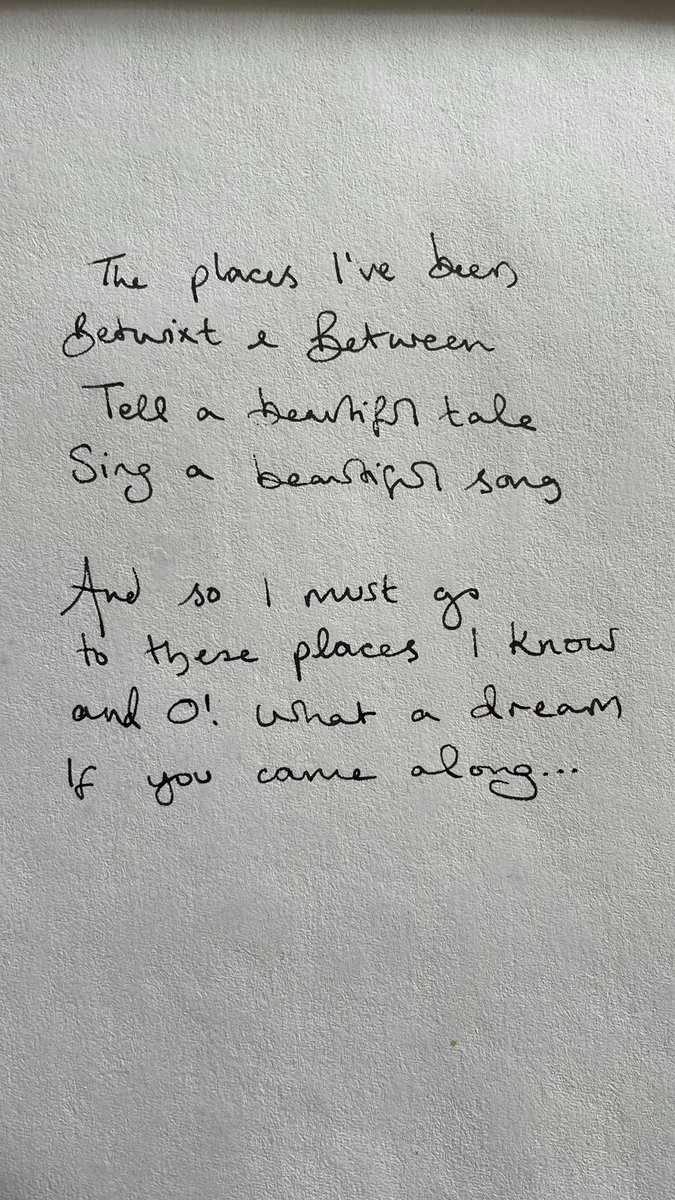 The places I've been
Betwixt & Between
Tell a beautiful tale
Sing a beautiful song
And so I must go
to these places I know
and O! what a dream
If you came along...